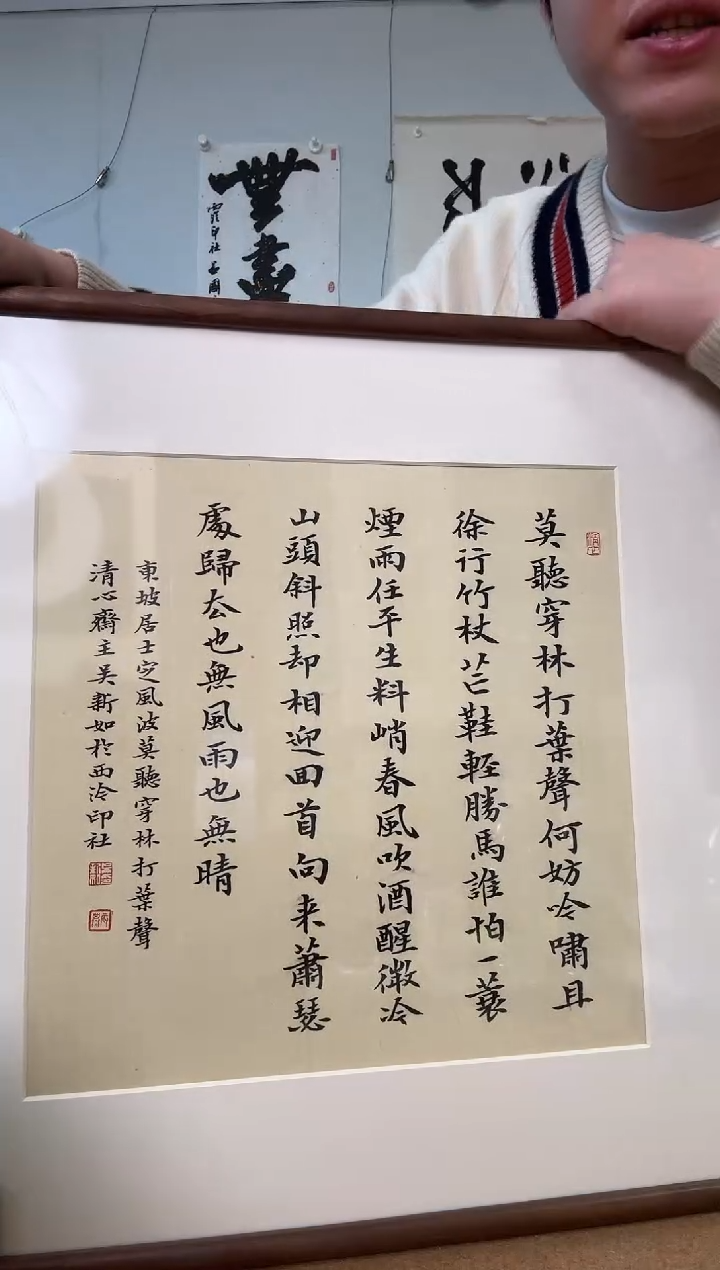 莫聽穿林打葉聲何妨吟嘯且
徐行竹杖芒鞋輕勝馬誰怕一蓑
煙雨任平生料峭春風吹酒醒微冷
山頭斜照却相迎回首向来蕭瑟
處歸去也無風雨也無晴
東坡居士定風波莫聽穿林打葉聲
清心齋主吴新如於西泠印社
無盡
印社